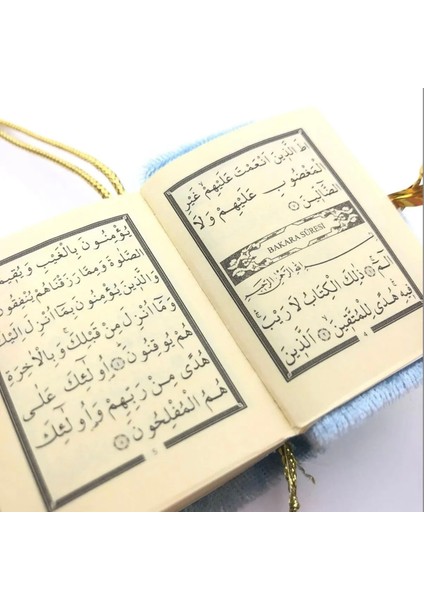 طَ الَّذٖينَ اَنْعَمْتَ عَلَيْهِمْ غَيْرِ
الْمَغْضُوبِ عَلَيْهِمْ وَلَا
الضَّٓالّٖينَ
BAKARA SÛRESİ
بِسْمِ اللّٰهِ الرَّحْمٰنِ الرَّحٖيمِ
الٓمٓ ذٰلِكَ الْكِتَابُ لَا رَيْبَ
فٖيهِ هُدًى لِلْمُتَّقٖينَ الَّذٖينَ
4
يُؤْمِنُونَ بِالْغَيْبِ وَيُقٖيمُو
الصَّلٰوةَ وَمِمَّا رَزَقْنَاهُمْ يُنْفِقُون
وَالَّذٖينَ يُؤْمِنُونَ بِمَٓا اُنْزِلَ اِلَيْكَ
وَمَٓا اُنْزِلَ مِنْ قَبْلِكَ وَبِالْاٰخِرَةِ
هُمْ يُوقِنُونَ اُو۬لٰٓئِكَ عَلٰى
هُدًى مِنْ رَبِّهِمْ وَاُو۬لٰٓئِكَ
هُمُ الْمُفْلِحُونَ
5